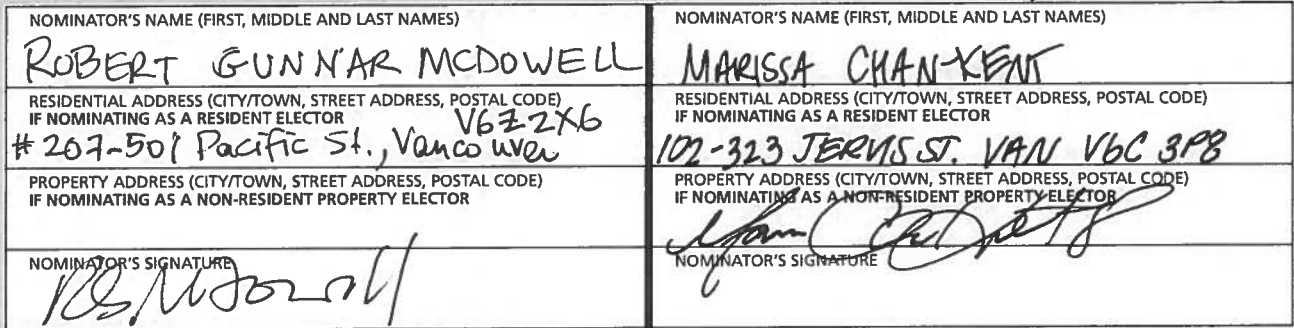 NOMINATOR'S NAME (FIRST, MIDDLE AND LAST NAMES)
ROBERT GUNNAR MCDOWELL
RESIDENTIAL ADDRESS (CITY/TOWN, STREET ADDRESS, POSTAL CODE)
IF NOMINATING AS A RESIDENT ELECTOR
V6Z2X6
#207-501 Pacific St., Vancouver
PROPERTY ADDRESS (CITY/TOWN, STREET ADDRESS, POSTAL CODE)
IF NOMINATING AS A NON-RESIDENT PROPERTY ELECTOR
NOMINATOR'S SIGNATURE
NOMINATOR'S NAME (FIRST, MIDDLE AND LAST NAMES)
MARISSA CHAN-KENT
RESIDENTIAL ADDRESS (CITY/TOWN, STREET ADDRESS, POSTAL CODE)
IF NOMINATING AS A RESIDENT ELECTOR
102-323 JERVIS ST. VAN V6C 3P8
PROPERTY ADDRESS (CITY/TOWN, STREET ADDRESS, POSTAL CODE)
IF NOMINATING AS A NON-RESIDENT PROPERTY ELECTOR
NOMINATOR'S SIGNATURE